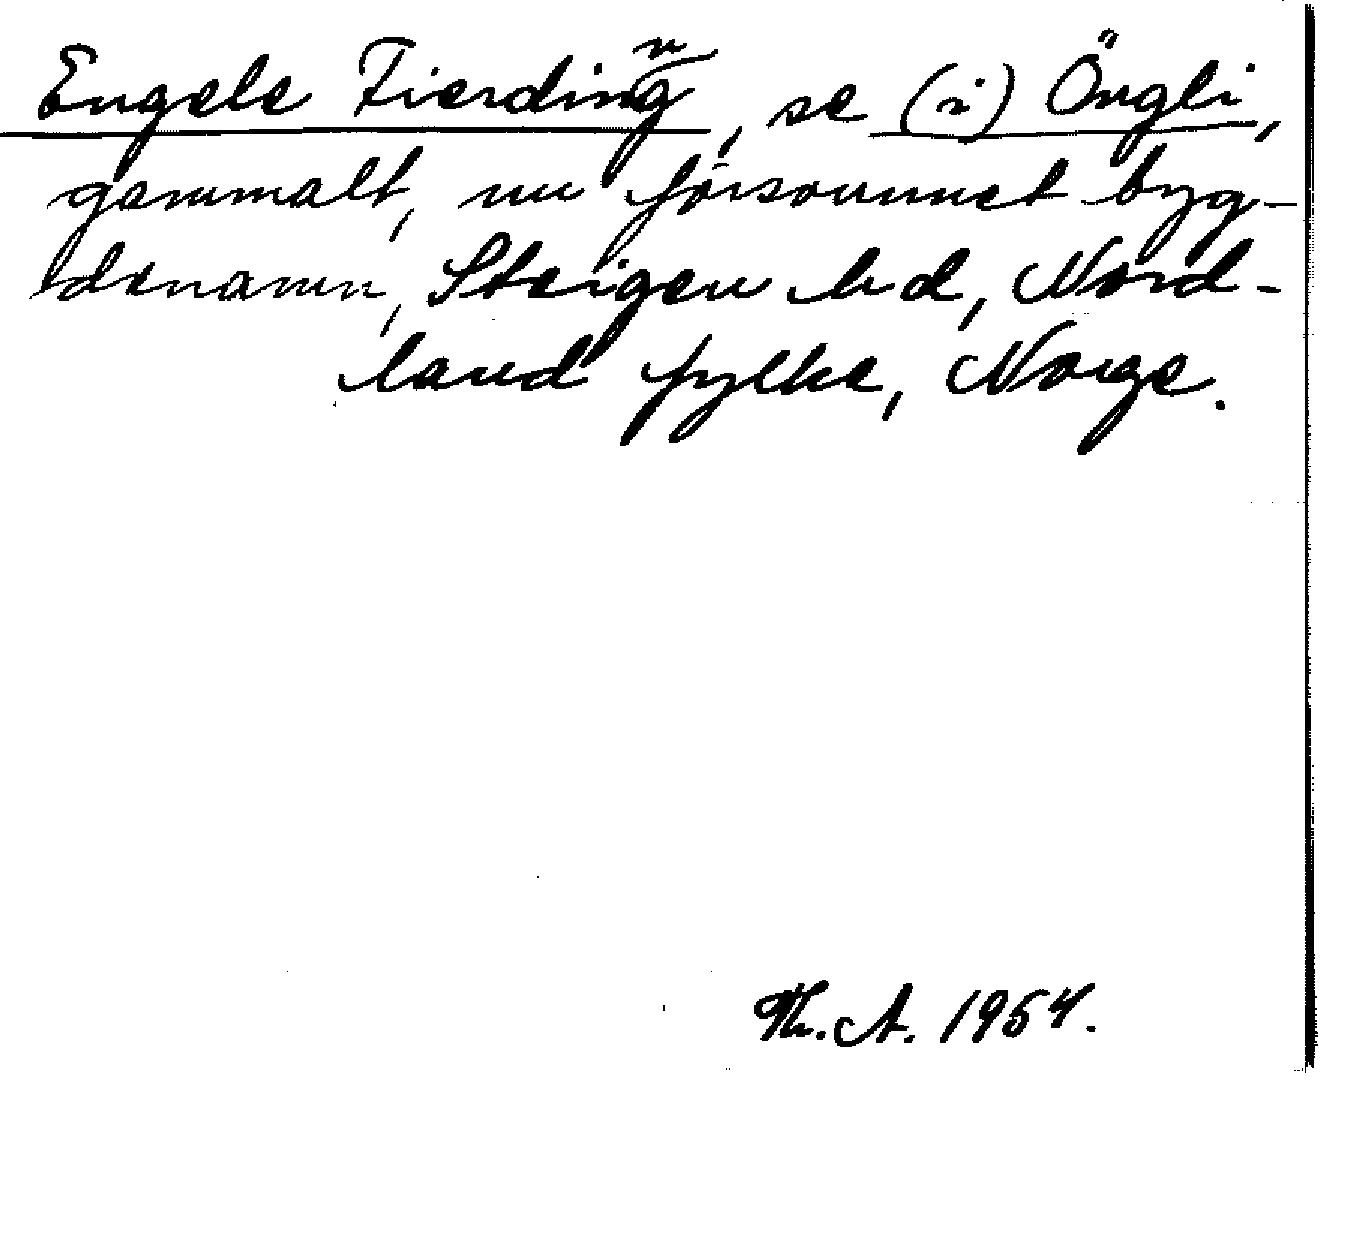 Engele Fierding, se (i) Öngli,
gammalt, nu försvunnet byg-
denamn, Steigen hd, Nord-
land fylke, Norge.
Th. A. 1954.